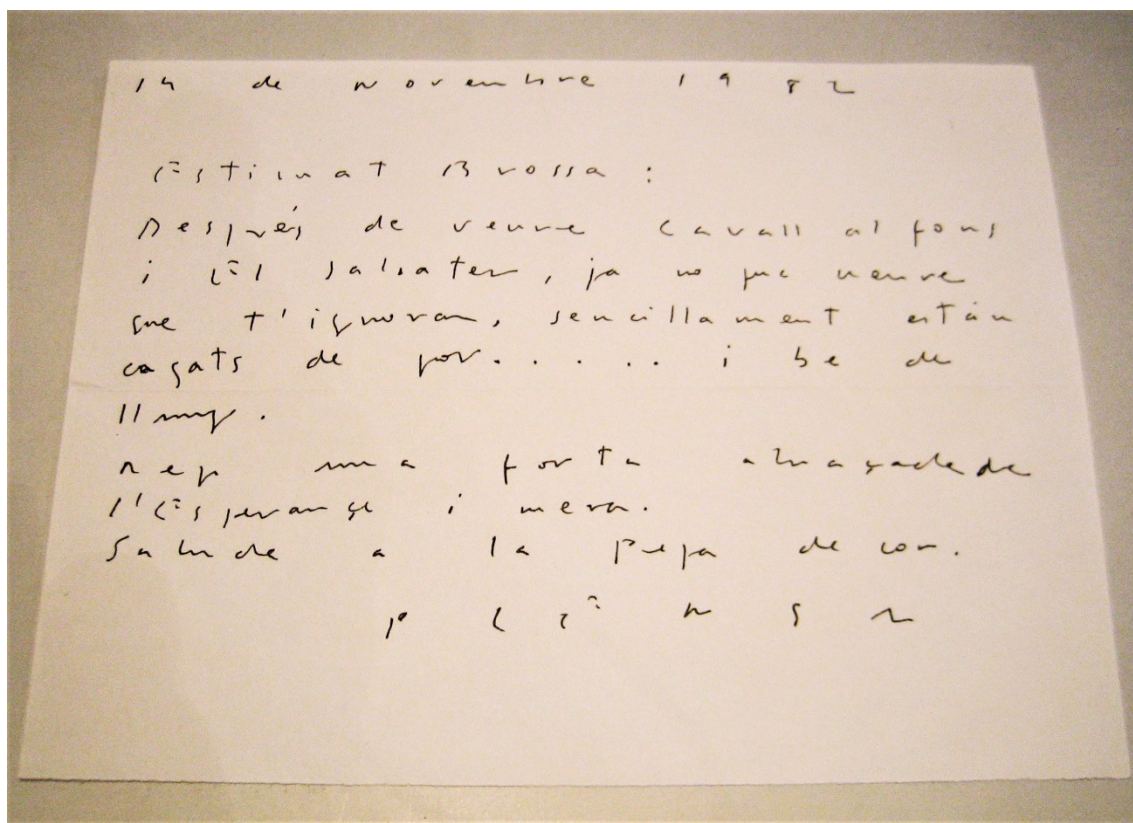 14 de novembre 1982
Estimat Brossa:
Després de veure Cavall al fons
i El saltater, ja no puc veure
que t'ignoran, sencillament están
cagats de por..... i be de
lluny.
Rep una forta abraçada de
l'Esperança i meva.
Saluda a la Pepa de cor.